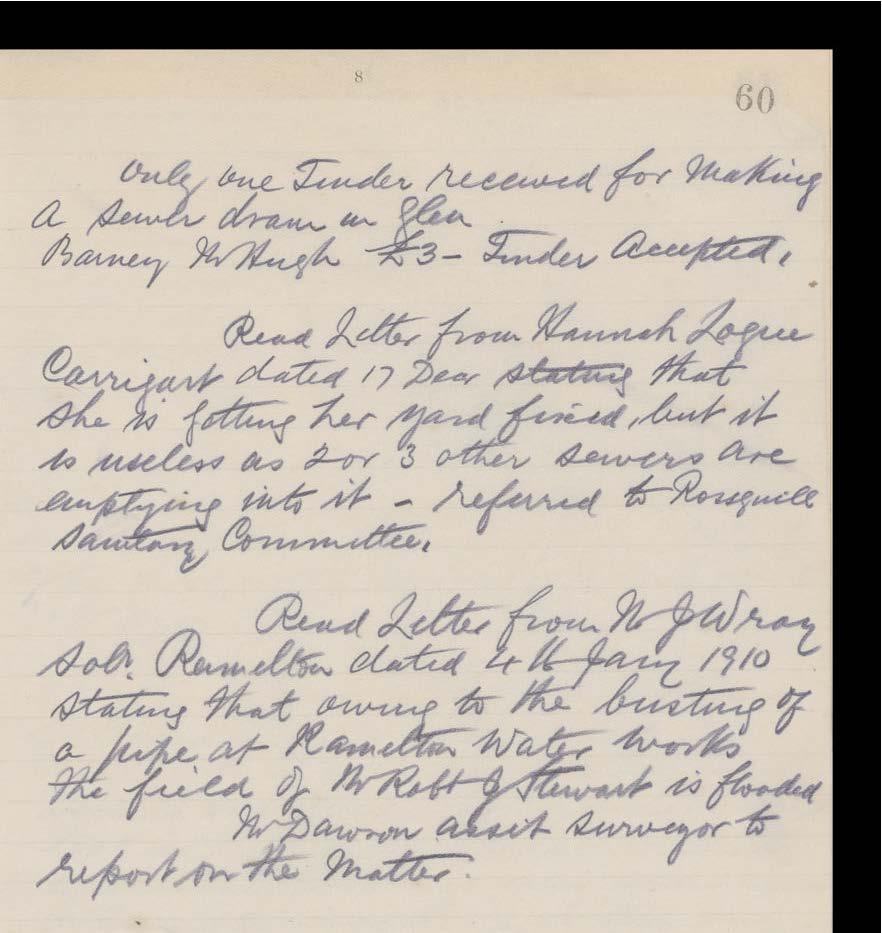 8
60
Only one Tender received for Making
A Sewer drain in Glen
Barney McHugh £3 - Tender Accepted.
Read Letter from Hannah Logue
Carrigart dated 17 Decr stating that
she is getting her yard fixed, but it
is useless as 2 or 3 other sewers are
emptying into it - referred to Rossguill
Sanitary Committee.
Read Letter from Mr J Wray
Solr. Ramelton dated 4th Jany 1910
stating that owing to the busting of
a pipe at Ramelton Water Works
the field of Mr Robt J Stewart is flooded
Mr Dawson assit surveyor to
report on the Matter.